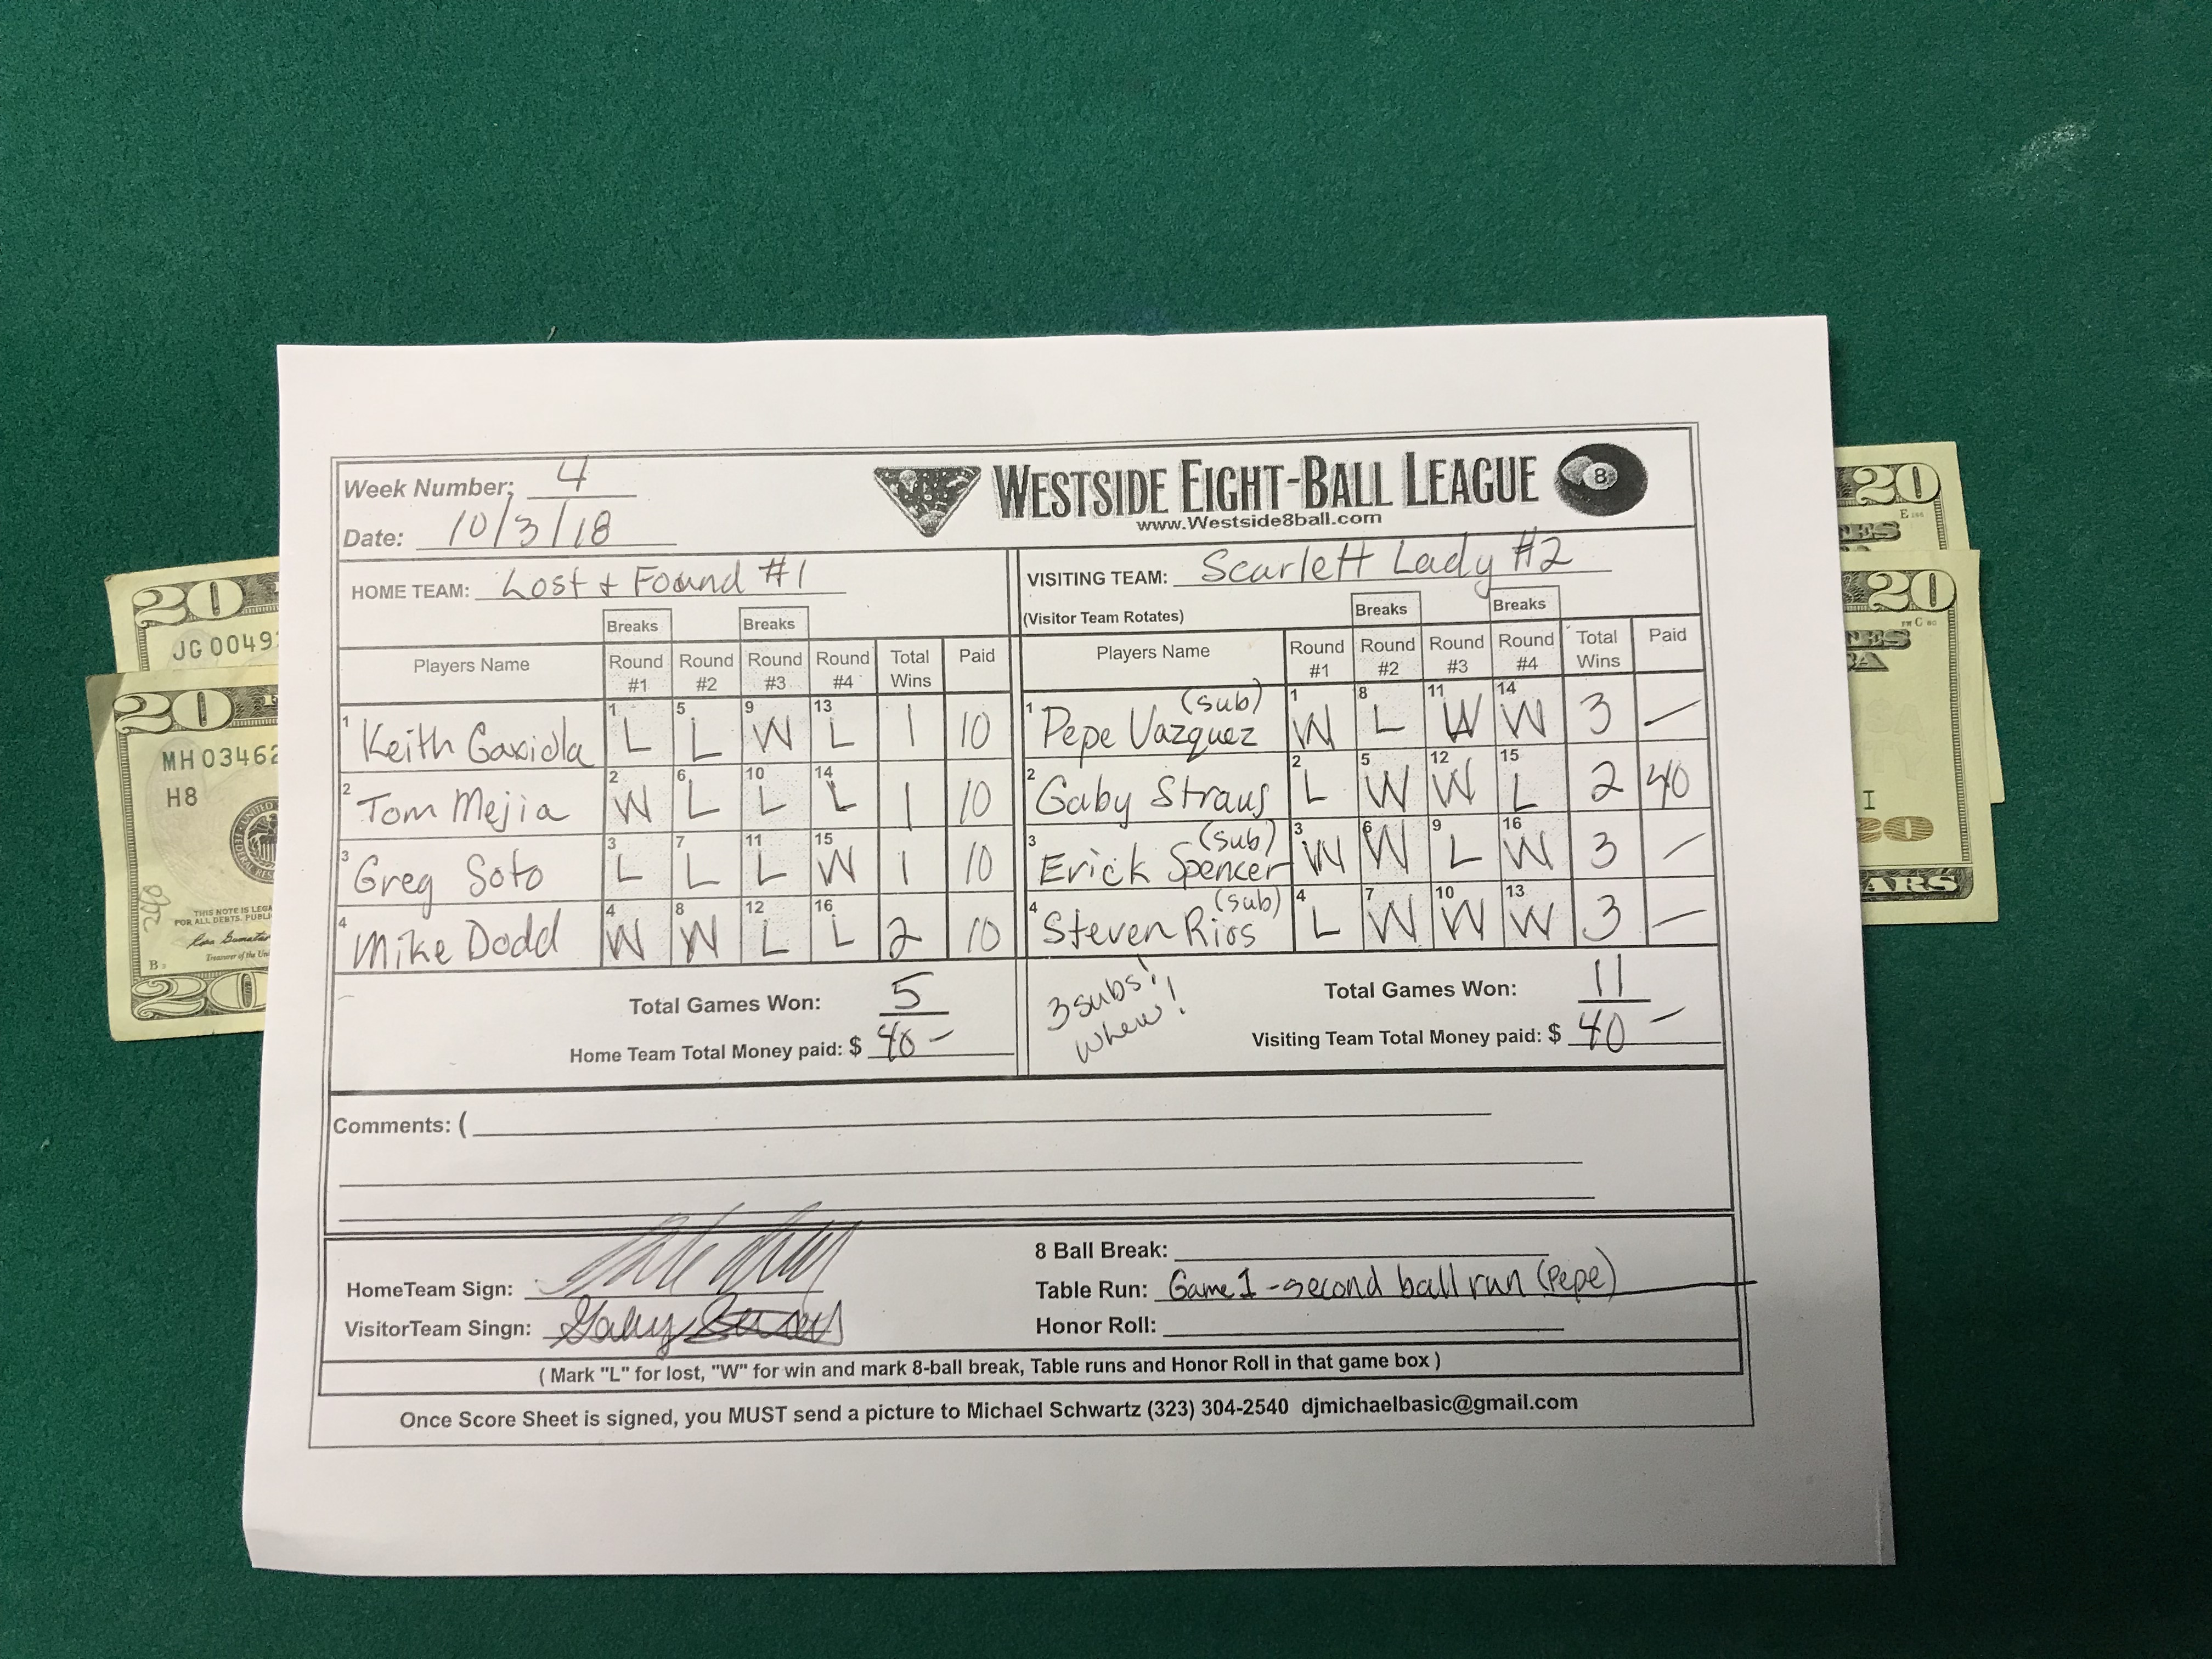 Week Number: 4
Date: 10/3/18
WESTSIDE EIGHT-BALL LEAGUE
8
www.Westside8ball.com
HOME TEAM: Lost + Found #1
VISITING TEAM: Scarlett Lady #2
(Visitor Team Rotates)
Breaks Breaks
Breaks Breaks
Players Name Round #1 Round #2 Round #3 Round #4 Total Wins Paid
1 Keith Gaxiola 1 L 5 L 9 W 13 L 1 10
2 Tom Mejia 2 W 6 L 10 L 14 L 1 10
3 Greg Soto 3 L 7 L 11 L 15 W 1 10
4 Mike Dodd 4 W 8 W 12 L 16 L 2 10
Total Games Won: 5
Home Team Total Money paid: $ 40 -
Players Name Round #1 Round #2 Round #3 Round #4 Total Wins Paid
1 Pepe Vazquez (sub) 1 W 8 L 11 W 14 W 3 —
2 Gaby Straus 2 L 5 W 12 W 15 L 2 40
3 Erick Spencer (sub) 3 W 6 W 9 L 16 W 3 —
4 Steven Rios (sub) 4 L 7 W 10 W 13 W 3 —
3 subs!
whew!
Total Games Won: 11
Visiting Team Total Money paid: $ 40 -
Comments: (
HomeTeam Sign:
VisitorTeam Singn: Gaby
8 Ball Break:
Table Run: Game 1 - second ball run (Pepe)
Honor Roll:
( Mark "L" for lost, "W" for win and mark 8-ball break, Table runs and Honor Roll in that game box )
Once Score Sheet is signed, you MUST send a picture to Michael Schwartz (323) 304-2540 djmichaelbasic@gmail.com
20
JG 0049
20
MH 03462
H8
THIS NOTE IS LEGA
FOR ALL DEBTS, PUBLI
Treasurer of the Un
B
20
20
E
ES
20
TES
A
I
20
ARS